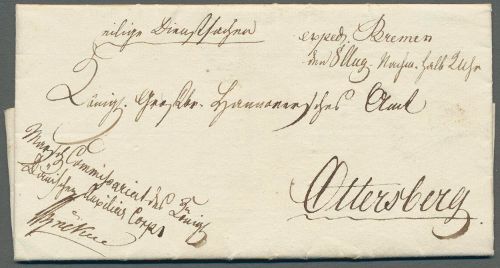 eilige Dienstsachen
exped. Bremen
den 8 Aug. Nachm. halb 2 Uhr
Königl. Großbr. Hannoversches Amt
Ottersberg
Marsch Commissariat des Königl.
Dänischen Auxiliar Corps